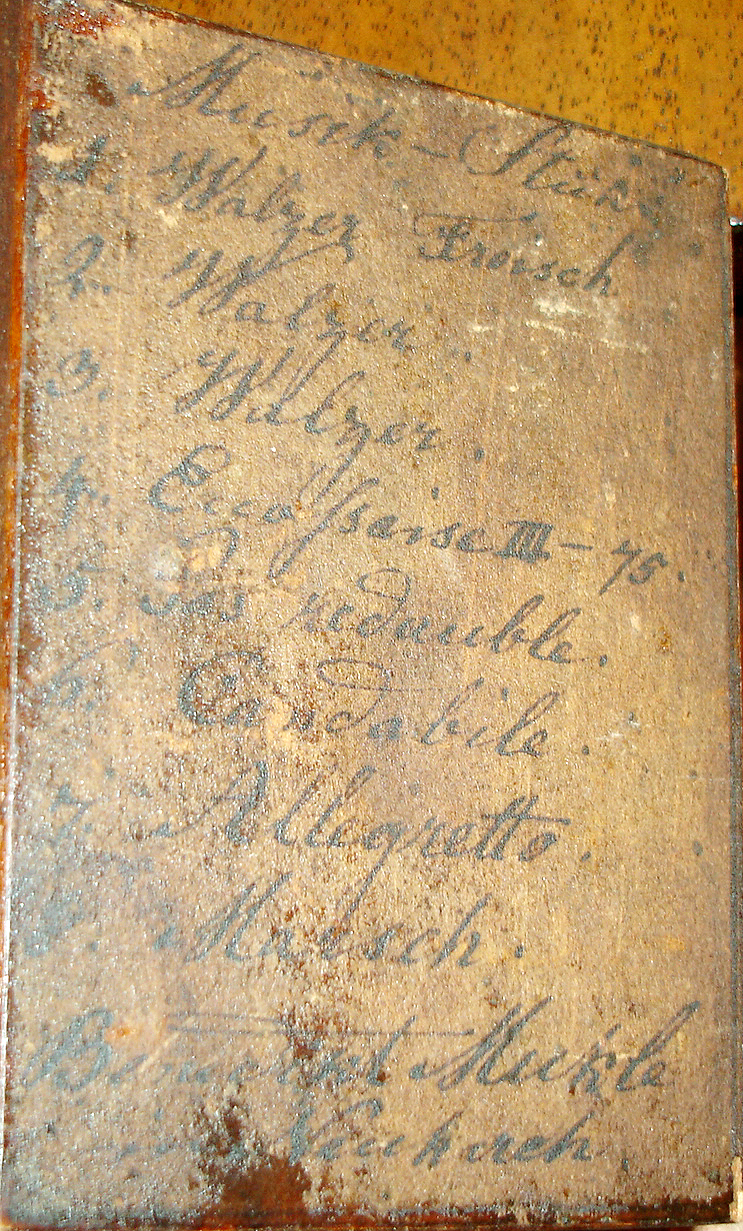 Musik-Stücke
1. Walzer
2. Walzer.
3. Walzer.
4. Eccossaise III - 75.
5. Pas redouble.
6. Candabile.
7. Allegretto.
8. Marsch.
Benedict Mukle
in Neukirch.